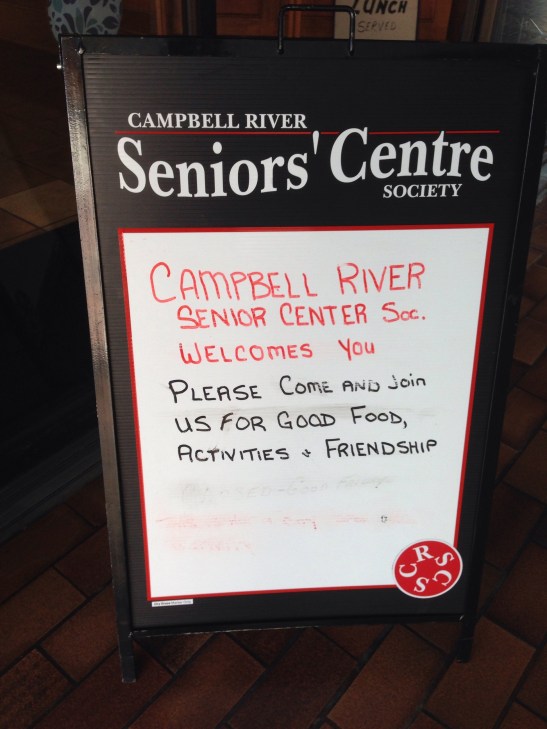 LUNCH
SERVED
CAMPBELL RIVER
Seniors' Centre
SOCIETY
CAMPBELL RIVER
SENIOR CENTER Soc.
WELCOMES You
PLEASE COME AND Join
US FOR GOOD FOOD,
ACTIVITIES & FRIENDSHIP
CRSCS